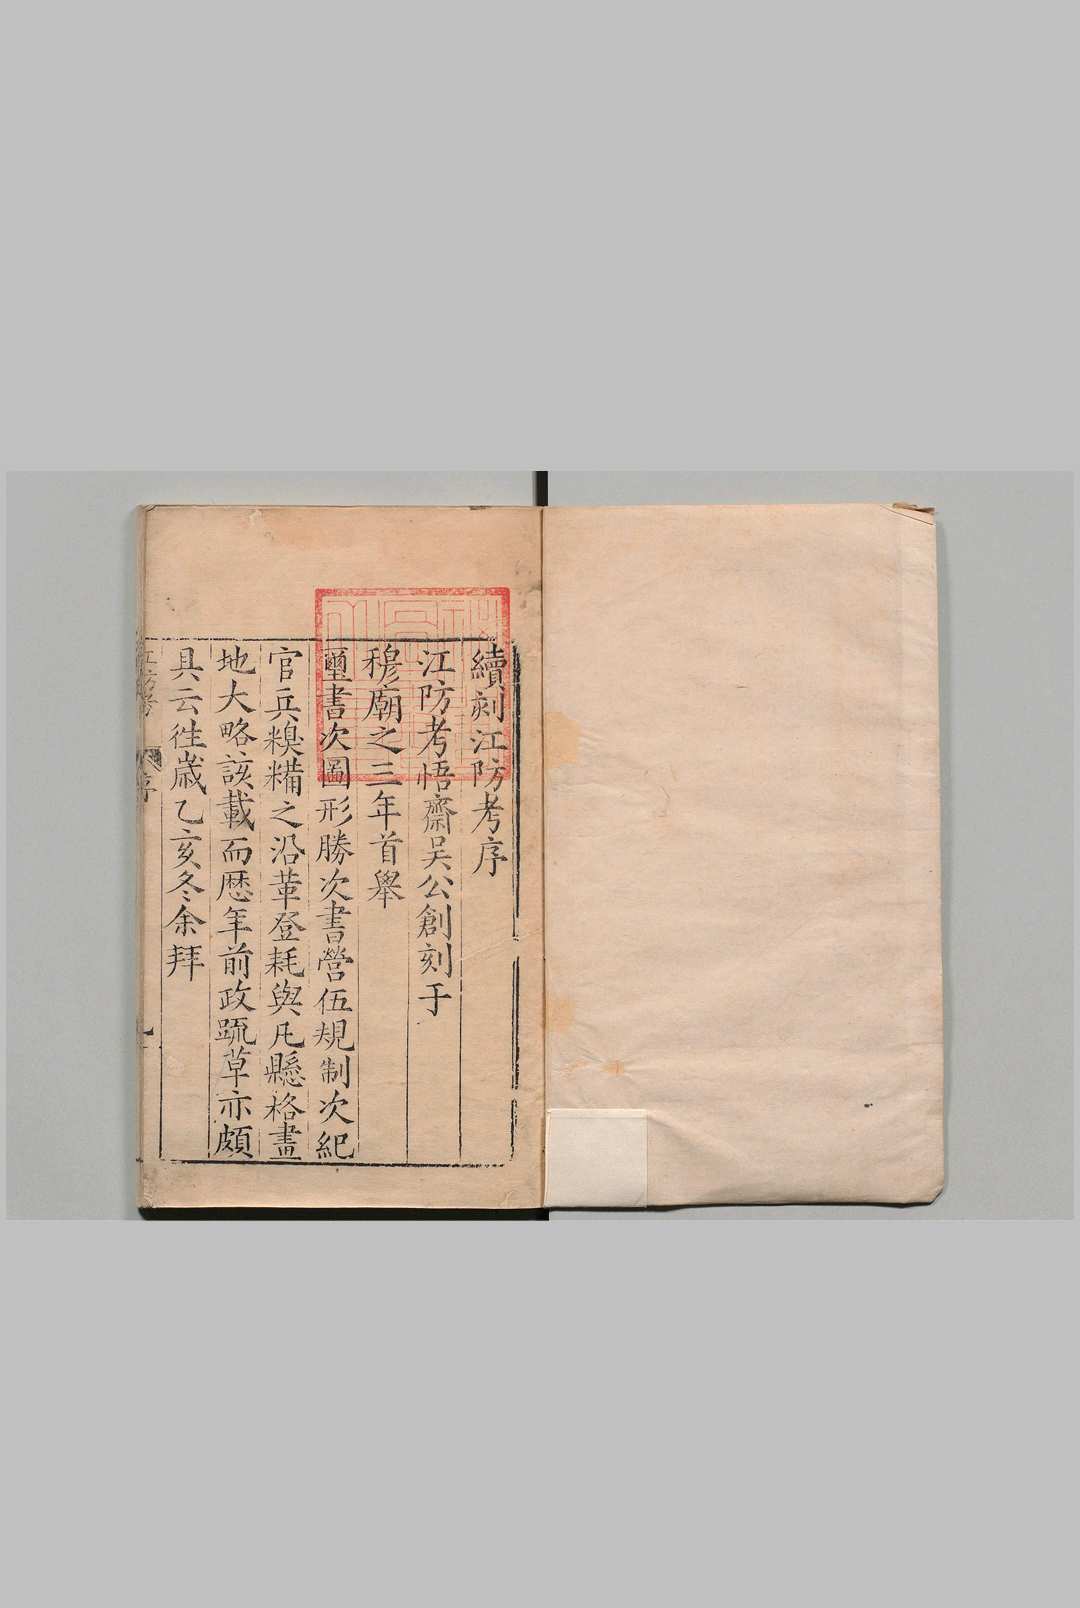 續刻江防考序
江防考悟齋吳公創刻于
穆廟之三年首舉
璽書次圖形勝次書營伍規制次紀
官兵糗糒之沿革登耗與凡懸格畫
地大略該載而歷年前政疏草亦頗
具云往歲乙亥冬余拜
江防考
序